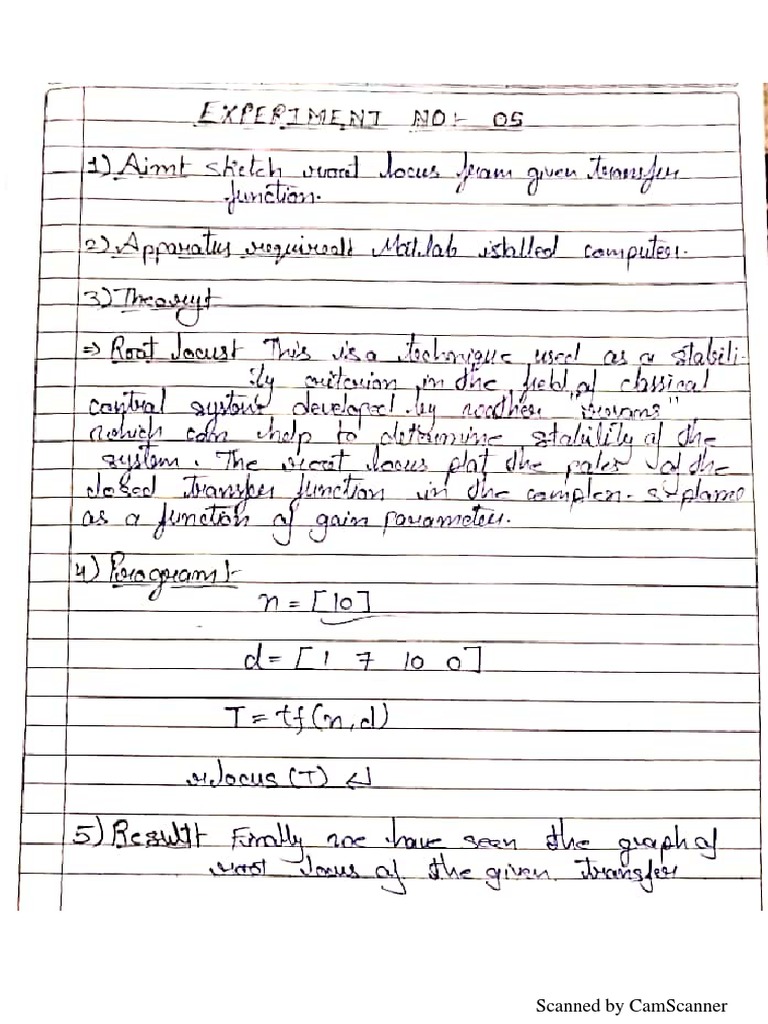 EXPERIMENT NO:- 05
1) Aim:- sketch root locus from given transfer
function.
2) Apparatus required:- Matlab istalled computer.
3) Theory:-
⇒ Root locus:- This is a technique used as a stabili-
ty criterion in the field of classical
control system developed by
which can help to determine stability of the
system. The root locus plot the poles of the
closed transfer function in the complex s-plane
as a function of gain parameter.
4) Program:-
n = [10]
d = [1 7 10 0]
T = tf(n,d)
rlocus(T) ↵
5) Result:- Finally we have seen the graph of
root locus of the given transfer
Scanned by CamScanner